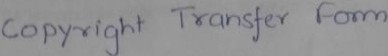 Copyright Transfer Form